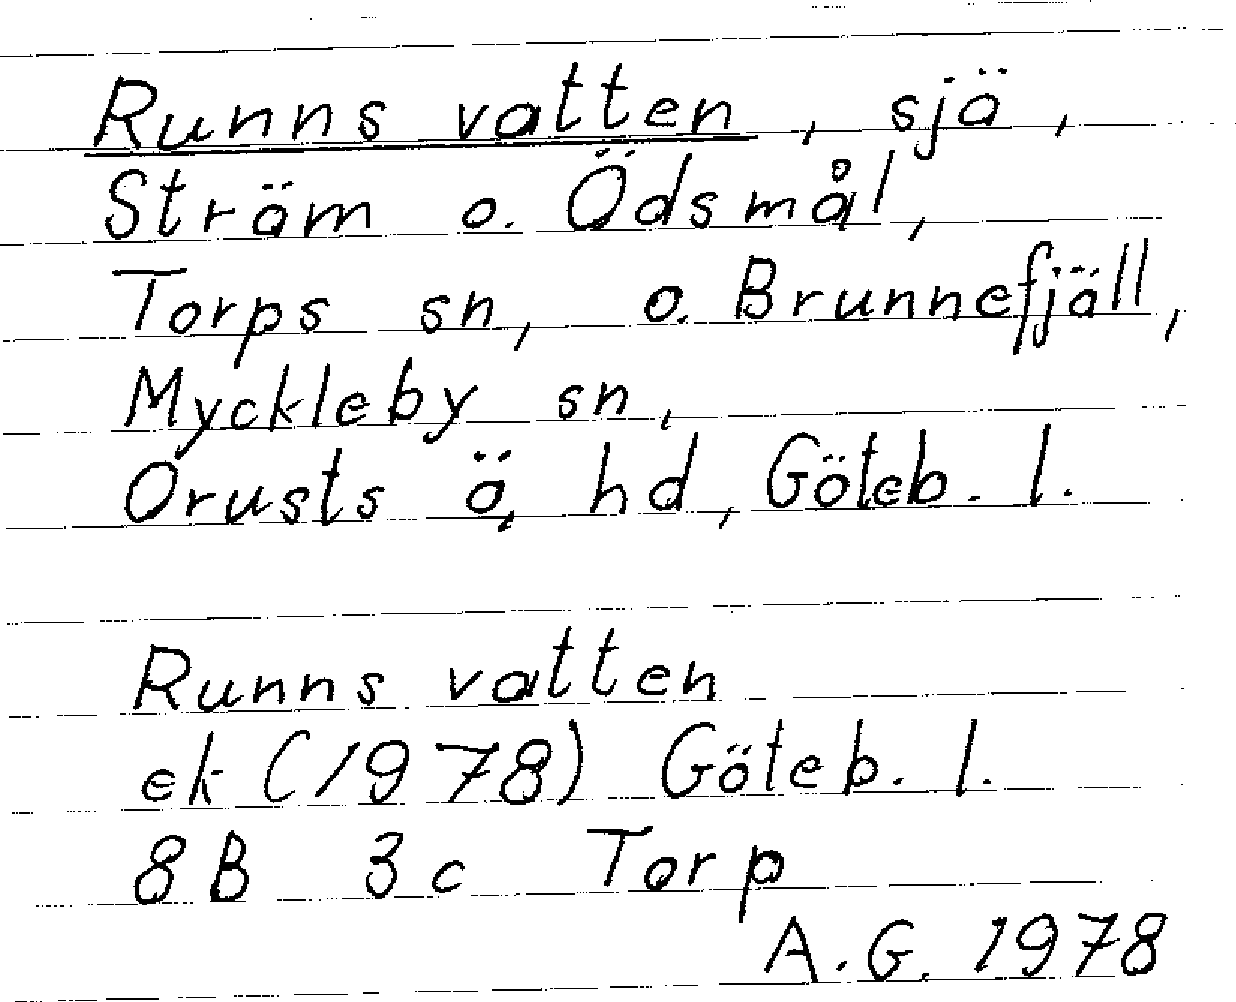 Runns vatten, sjö,
Ström o. Ödsmål,
Torps sn, o. Brunnefjäll,
Myckleby sn,
Orusts ö, hd, Göteb. l.
Runns vatten
ek (1978) Göteb. l.
8B 3c Torp
A.G. 1978